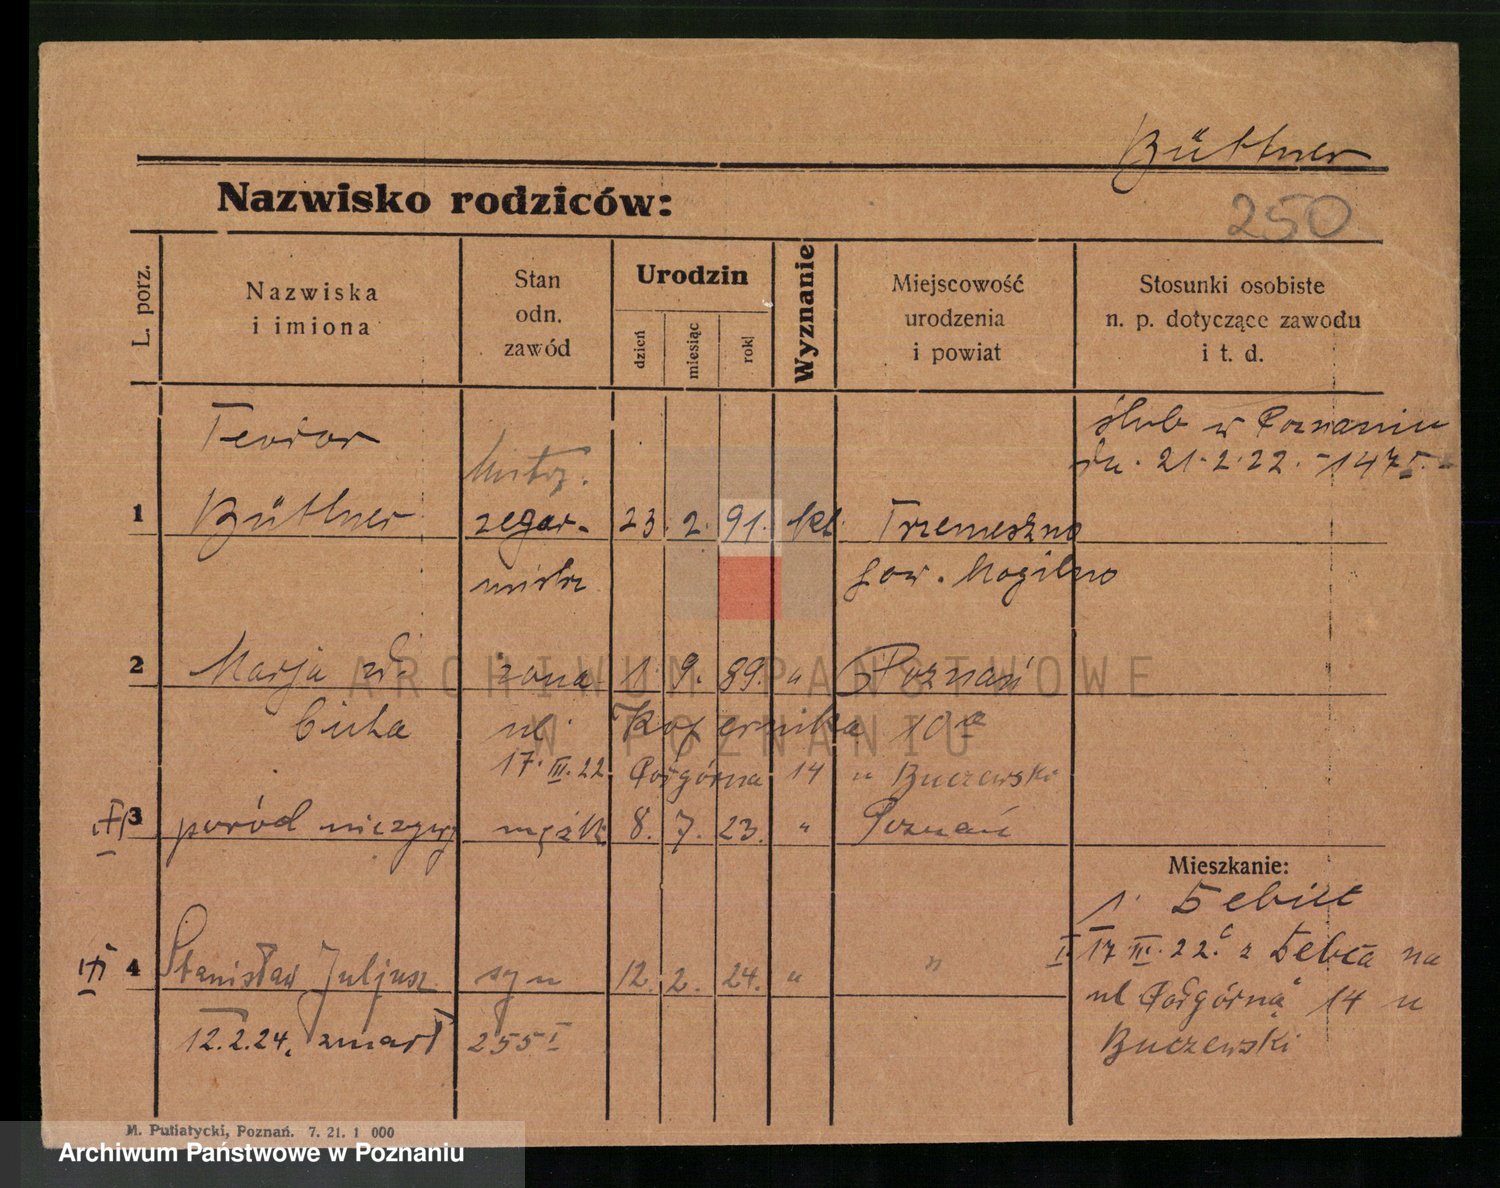 Büttner
Nazwisko rodziców:
250
L. porz.
Nazwiska
i imiona
Stan
odn.
zawód
Urodzin
dzień
miesiąc
rok
Wyznanie
Miejscowość
urodzenia
i powiat
Stosunki osobiste
n. p. dotyczące zawodu
i t. d.
Teodor
ślub w Poznaniu
dn. 21.2.22. - 147
1 Büttner zegar- 23. 2. 91. kat. Trzemeszno
mistrz pow. Mogilno
2 Marja żona 1. 9. 89. " Poznań
Cicha ul. Kopernika 10a
17. III. 22 Podgórna 14 u Buczewski
3 poród nieżywy męzk 8. 7. 23. " Poznań
Mieszkanie:
1. Dębiec
4 Stanisław Juljusz syn 12. 2. 24. " "
17 III. 22. z Dębca na
ul Podgórną 14 u
12.2.24. zmarł 255 I
Buczewski
M. Putiatycki, Poznań. 7. 21. 1 000
ARCHIWUM PAŃSTWOWE
W POZNANIU
Archiwum Państwowe w Poznaniu